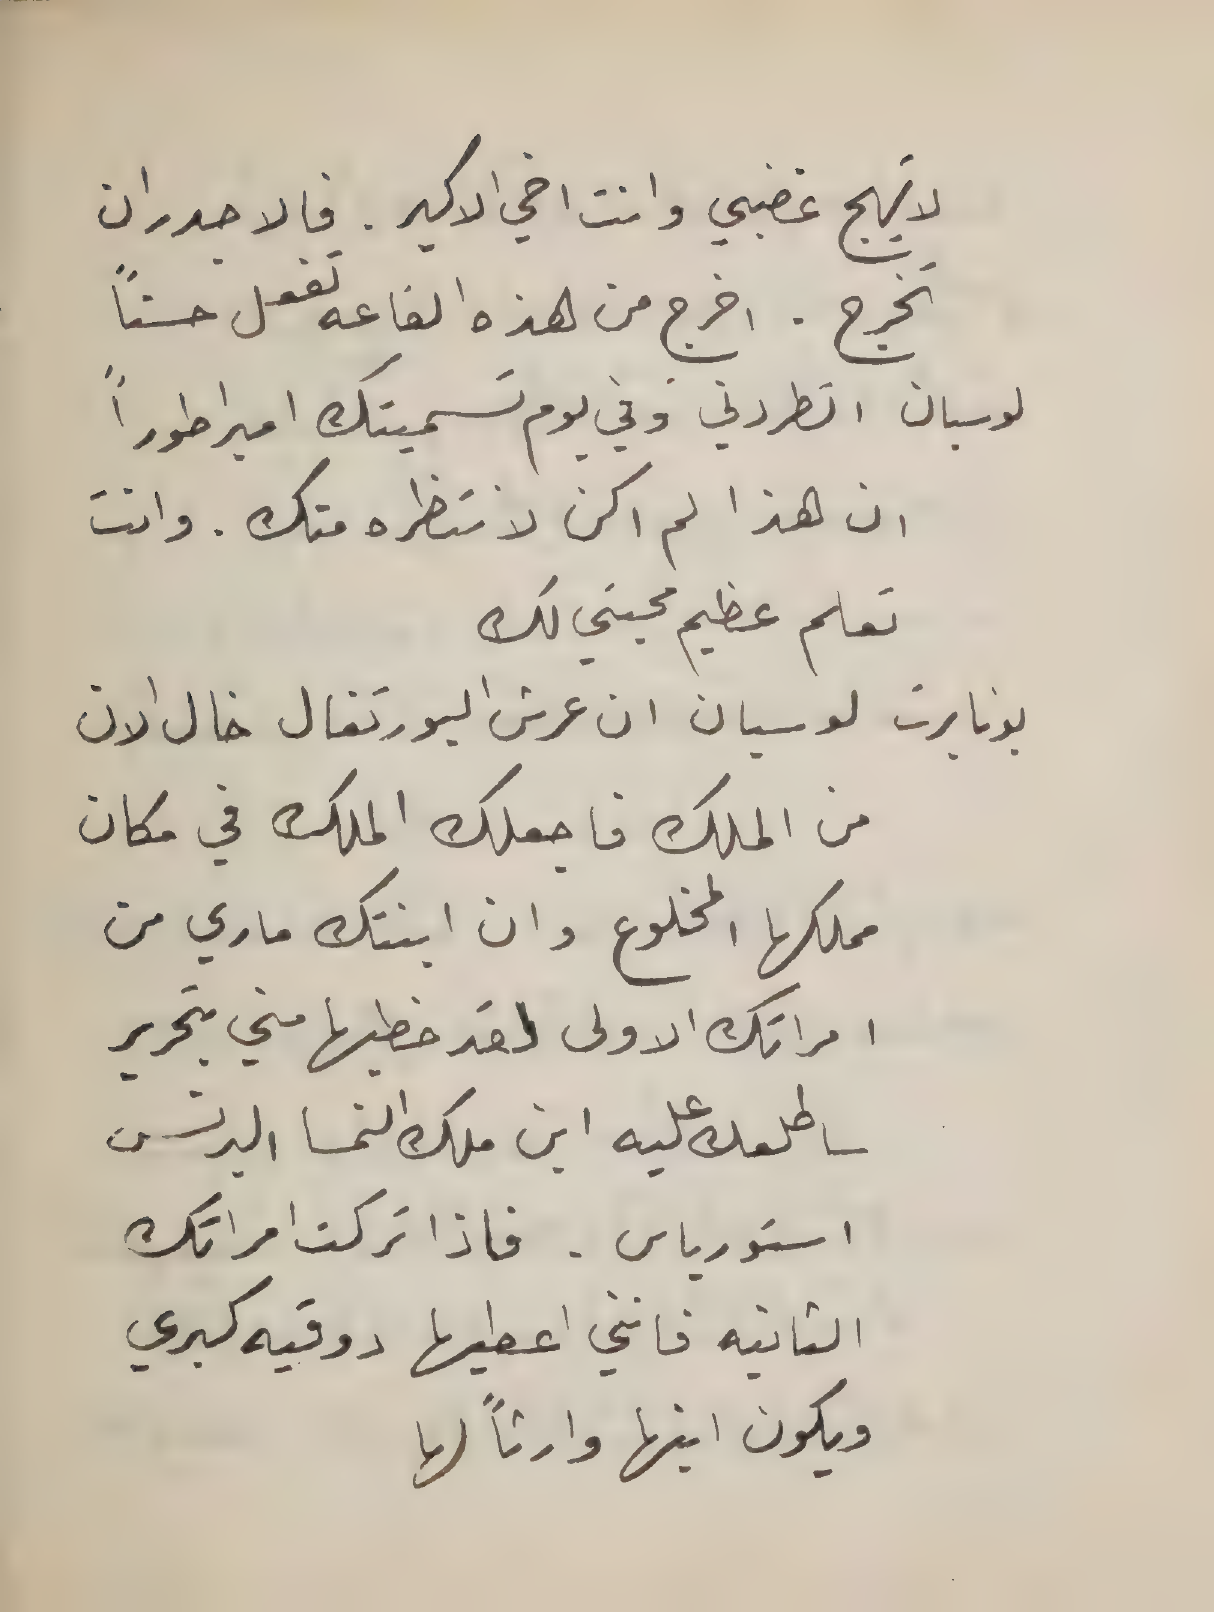 لا تهج غضبي وانت اخي الاكبر . فالاجدر ان
تخرج . اخرج من هذه القاعه تفعل حسناً
لوسيان اتطردني وفي يوم تسميتك امبراطوراً
ان هذا لم اكن لانتظره منك . وانت
تعلم عظيم محبتي لك
بونابرت لوسيان ان عرش البورتغال خال الان
من الملك فاجعلك الملك في مكان
مملكها المخلوع وان ابنتك ماري من
امراتك الاولى لقد خطبها مني بتحرير
ساطلعك عليه ابن ملك النمسا البرنس
استورياس . فاذا تركت امراتك
الثانيه فانني اعطيها دوقيه كبري
ويكون ابنها وارثاً لها